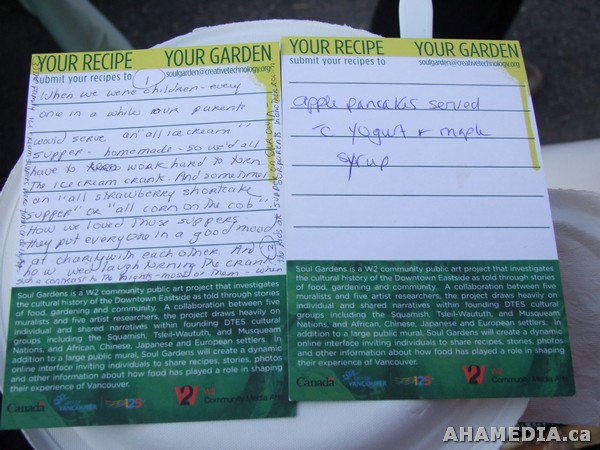 YOUR RECIPE YOUR GARDEN
submit your recipes to soulgarden@creativetechnology.org
1
When we were children - every
one in a while our parents
would serve an "all icecream"
supper - homemade - so we'd all
have to work hard to turn
the icecream crank. And sometimes
an "all strawberry shortcake
supper" or "all corn on the cob"
How we loved those suppers
they put everyone in a good mood
at charity with each other And
how we'd laugh turning the crank
such a contrast to the - most of them - when
Soul Gardens is a W2 community public art project that investigates
the cultural history of the Downtown Eastside as told through stories
of food, gardening and community. A collaboration between five
muralists and five artist researchers, the project draws heavily on
individual and shared narratives within founding DTES cultural
groups including the Squamish, Tsleil-Waututh, and Musqueam
Nations, and African, Chinese, Japanese and European settlers. In
addition to a large public mural, Soul Gardens will create a dynamic
online interface inviting individuals to share recipes, stories, photos
and other information about how food has played a role in shaping
their experience of Vancouver.
Canada
VANCOUVER
125
W2
Community Media Arts
YOUR RECIPE YOUR GARDEN
submit your recipes to soulgarden@creativetechnology.org
apple pancakes served
c yogurt + maple
syrup
Soul Gardens is a W2 community public art project that investigates
the cultural history of the Downtown Eastside as told through stories
of food, gardening and community. A collaboration between five
muralists and five artist researchers, the project draws heavily on
individual and shared narratives within founding DTES cultural
groups including the Squamish, Tsleil-Waututh, and Musqueam
Nations, and African, Chinese, Japanese and European settlers. In
addition to a large public mural, Soul Gardens will create a dynamic
online interface inviting individuals to share recipes, stories, photos
and other information about how food has played a role in shaping
their experience of Vancouver.
Canada
VANCOUVER
125
W2
Community Media Arts
AHAMEDIA.ca